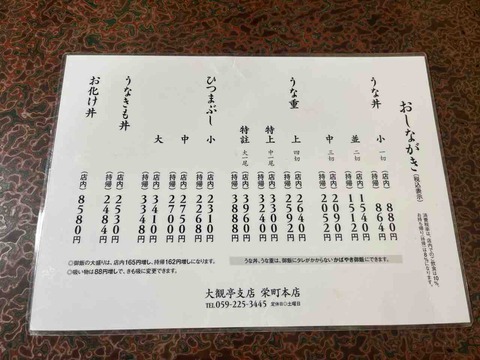 おしながき(税込表示)
消費税率は、店内でのご飲食は10%、
お持ち帰り(持帰)は8%になります。
うな丼
小 一切 (店内) 880円
(持帰) 864円
並 二切 (店内) 1540円
(持帰) 1512円
うな重
中 三切 (店内) 2090円
(持帰) 2052円
上 四切 (店内) 2640円
(持帰) 2592円
特上 中一尾 (店内) 3300円
(持帰) 3240円
特註 大一尾 (店内) 3960円
(持帰) 3888円
ひつまぶし
小 (店内) 2310円
(持帰) 2268円
中 (店内) 2750円
(持帰) 2700円
大 (店内) 3410円
(持帰) 3348円
うなきも丼 (店内) 2530円
(持帰) 2484円
お化け丼 (店内) 8580円
◎御飯の大盛りは、店内165円増し、持帰162円増しになります。
◎吸い物は88円増しで、きも吸に変更できます。
うな丼、うな重は、御飯にタレがかからないかばやき御飯にできます。
大観亭支店 栄町本店
TEL 059-225-3445 定休日◎土曜日